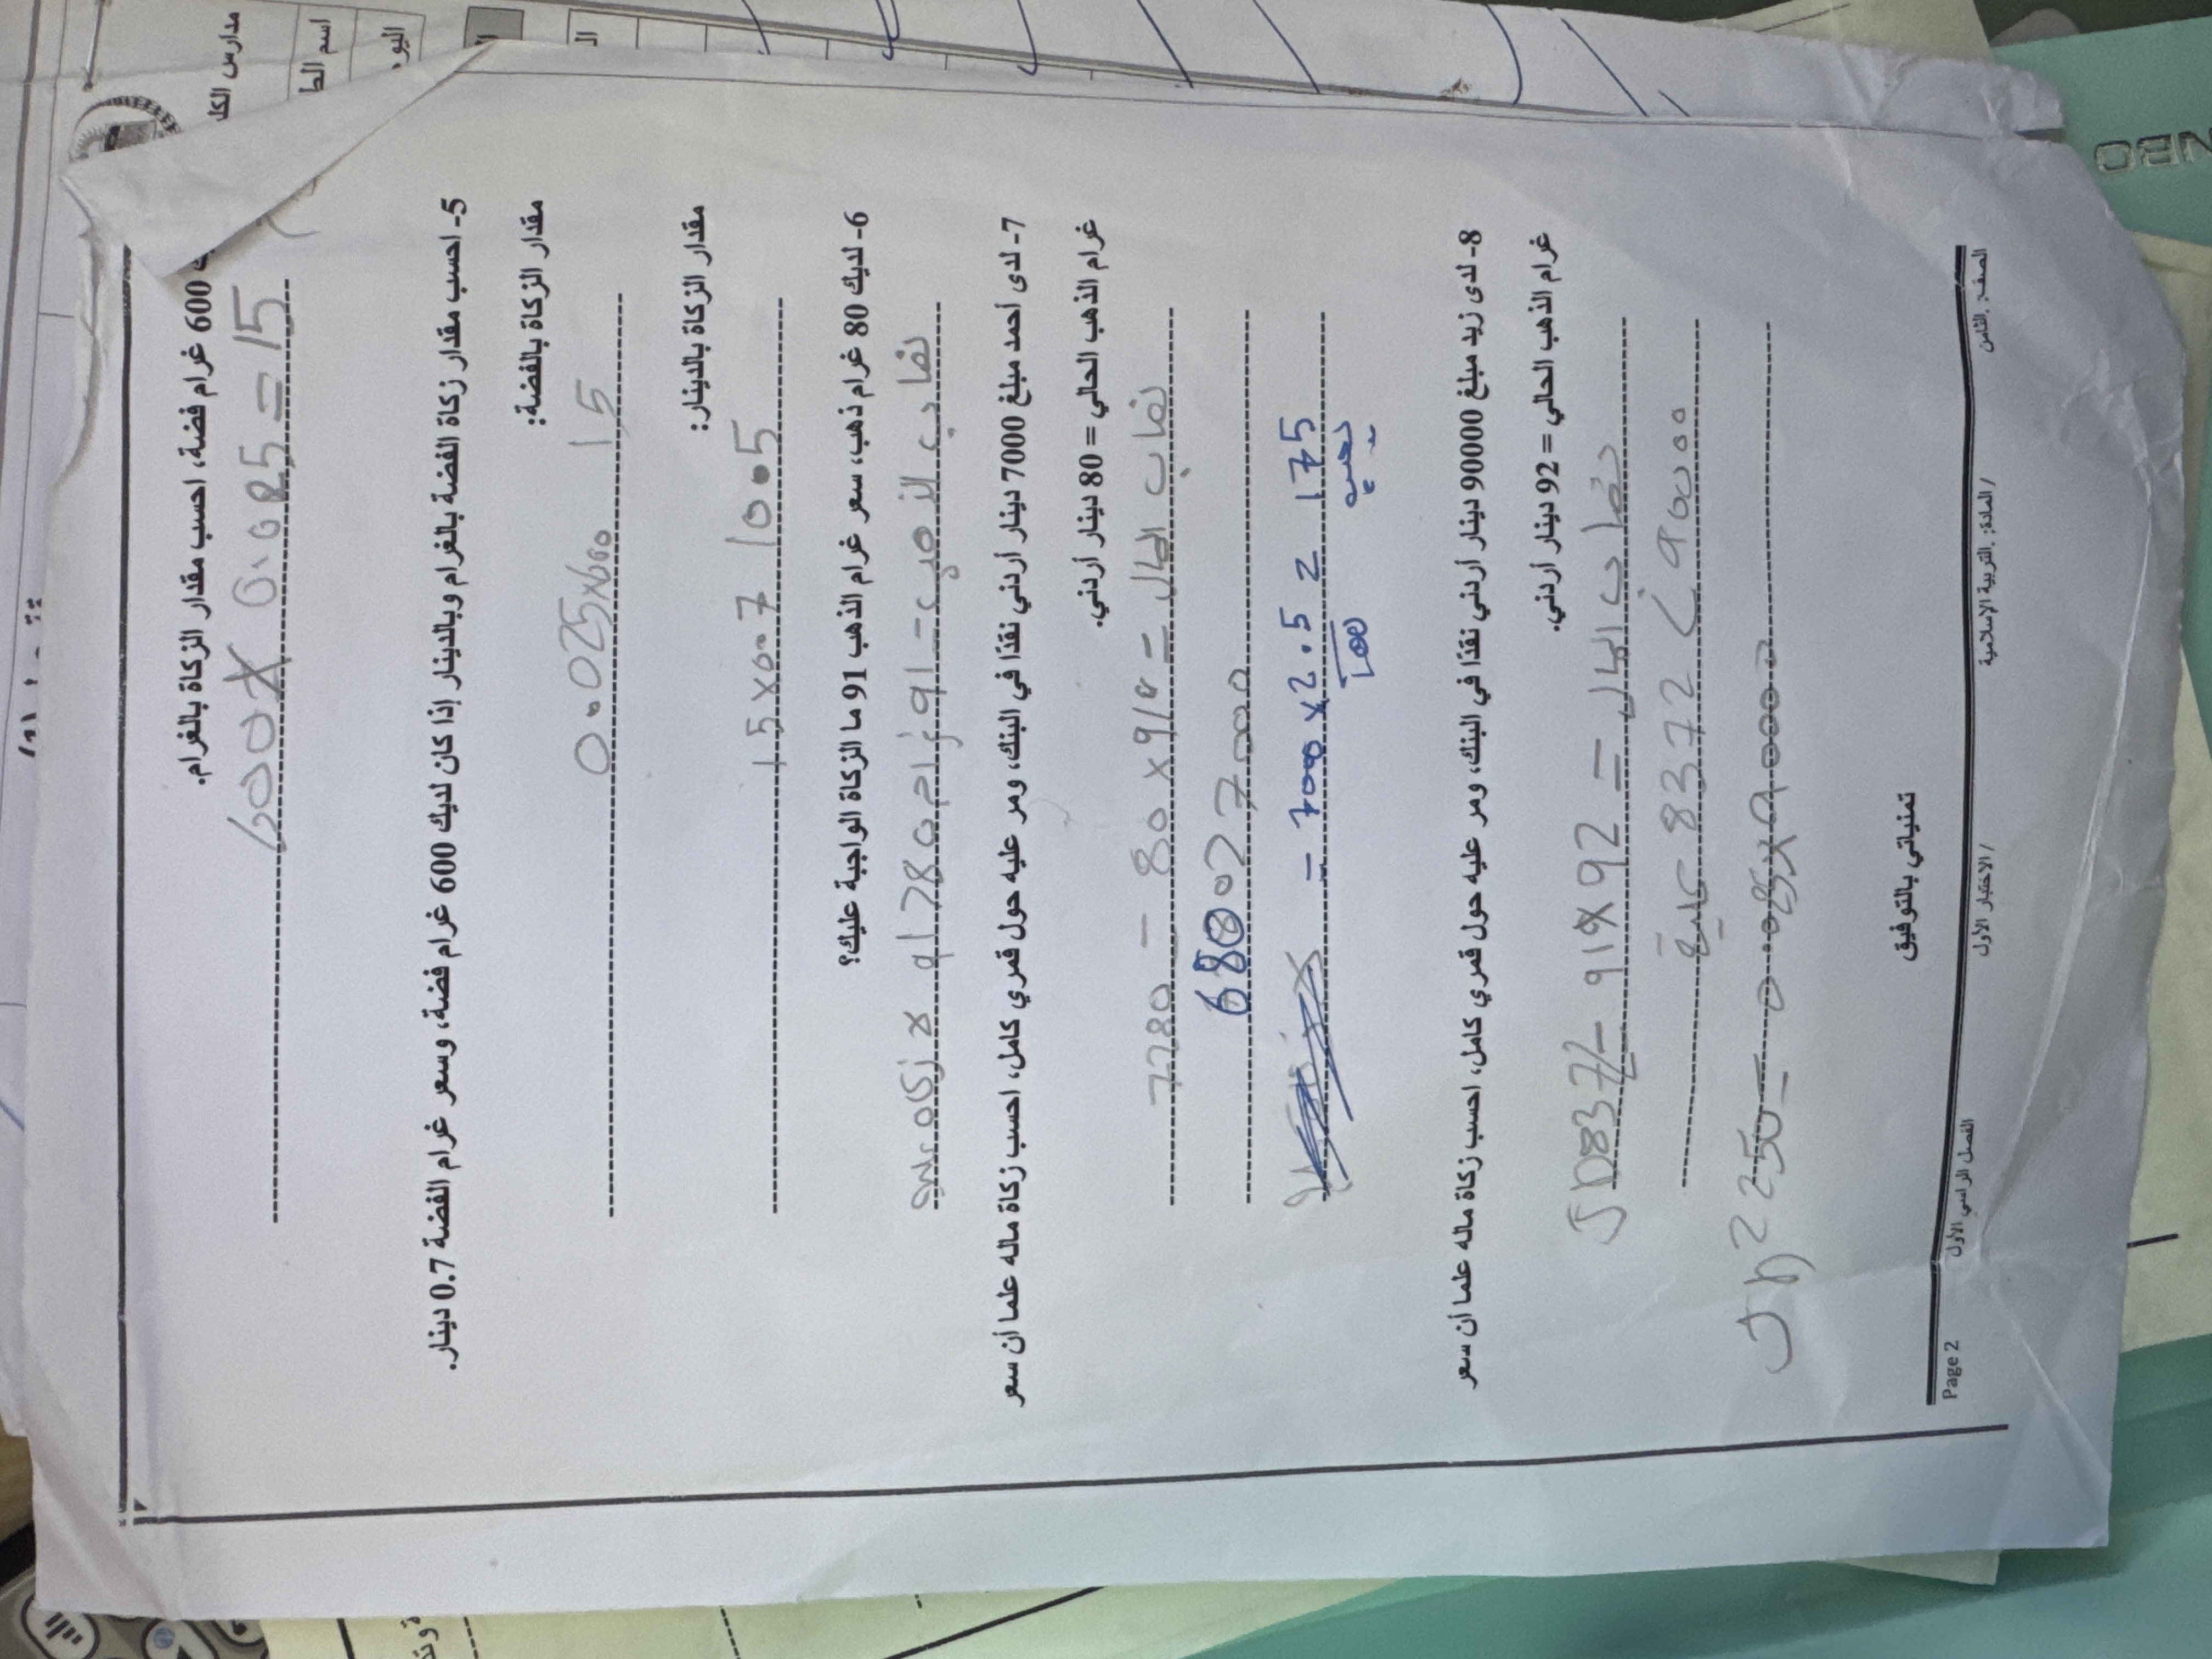 مدارس الكلـ
اسم الطا
اليو
600 غرام فضة، احسب مقدار الزكاة بالغرام.
600 X 0.025 = 15
5- احسب مقدار زكاة الفضة بالغرام وبالدينار إذا كان لديك 600 غرام فضة، وسعر غرام الفضة 0.7 دينار.
مقدار الزكاة بالفضة:
0.025x600 15
مقدار الزكاة بالدينار:
15 x 0.7 10.5
6- لديك 80 غرام ذهب، سعر غرام الذهب 91 ما الزكاة الواجبة عليك؟
نصاب الذهب = 91 غرام 80 < 91 لا زكاة عليه
7- لدى أحمد مبلغ 7000 دينار أردني نقدًا في البنك، ومر عليه حول قمري كامل، احسب زكاة ماله علما أن سعر
غرام الذهب الحالي = 80 دينار أردني.
نصاب المال = 91 x 80 = 7280
6800 7000
= 7000 x 2.5 175
100
8- لدى زيد مبلغ 90000 دينار أردني نقدًا في البنك، ومر عليه حول قمري كامل، احسب زكاة ماله علما أن سعر
غرام الذهب الحالي = 92 دينار أردني.
نصاب المال = 91X92 = JD8372
90000 > 8372 عليه
0.025 x 90000 = 2250 JD
تمنياتي بالتوفيق
الصف: الثامن / المادة: التربية الإسلامية / الاختبار الأول الفصل الدراسي الأول Page 2